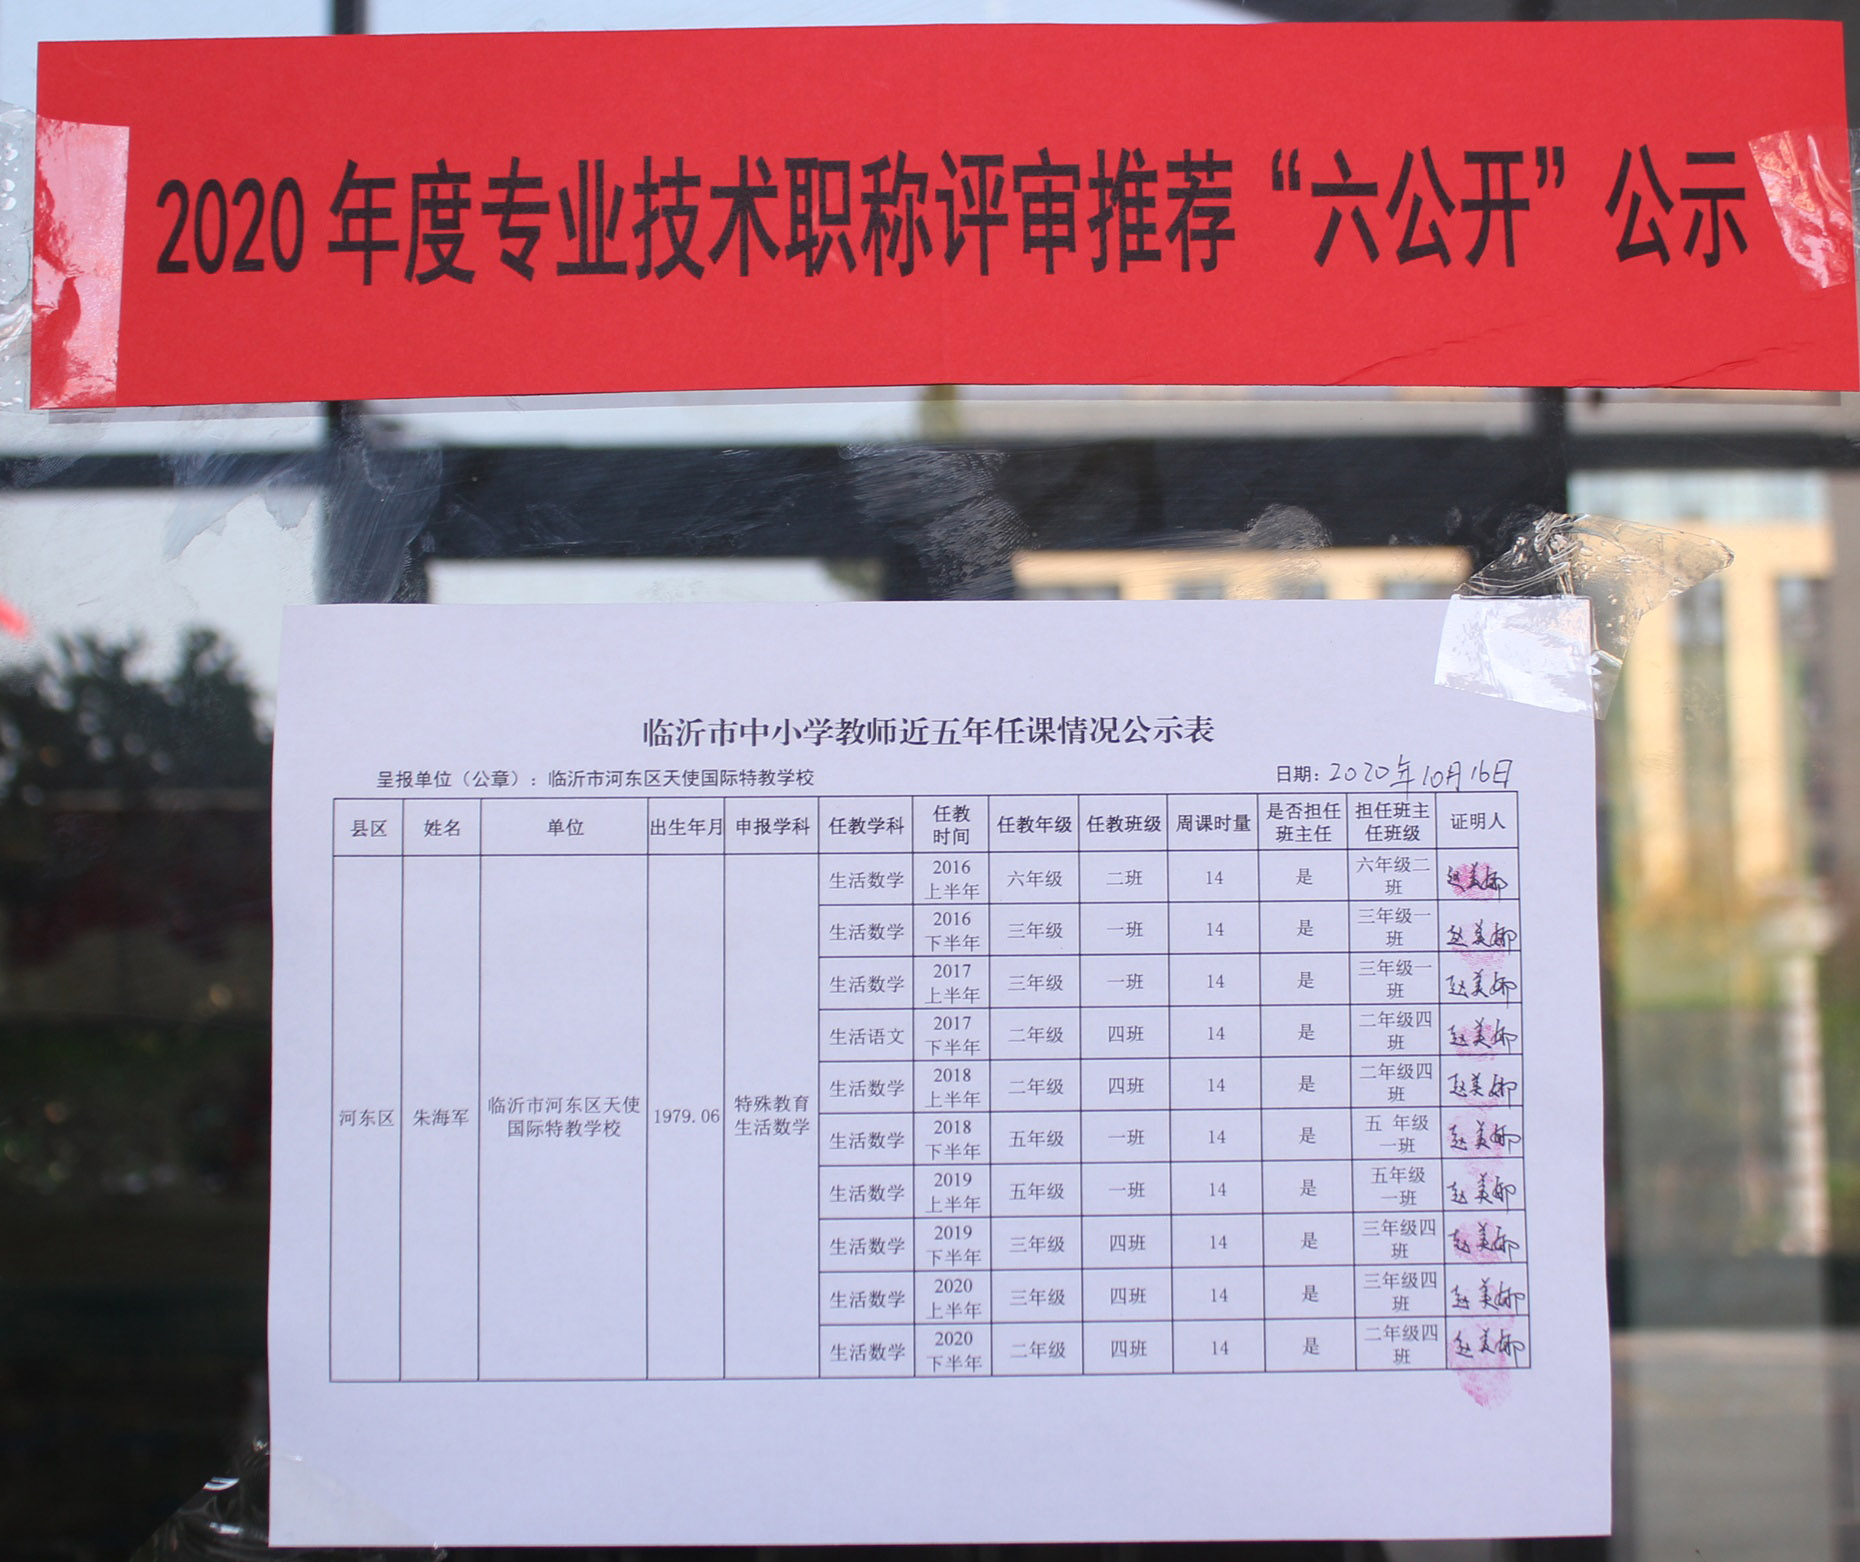 2020 年度专业技术职称评审推荐“六公开”公示
临沂市中小学教师近五年任课情况公示表
呈报单位（公章）：临沂市河东区天使国际特教学校 日期：2020年10月16日
县区 姓名 单位 出生年月 申报学科 任教学科 任教时间 任教年级 任教班级 周课时量 是否担任班主任 担任班主任班级 证明人
河东区 朱海军 临沂市河东区天使国际特教学校 1979.06 特殊教育生活数学
生活数学 2016上半年 六年级 二班 14 是 六年级二班 赵美娜
生活数学 2016下半年 三年级 一班 14 是 三年级一班 赵美娜
生活数学 2017上半年 三年级 一班 14 是 三年级一班 赵美娜
生活语文 2017下半年 二年级 四班 14 是 二年级四班 赵美娜
生活数学 2018上半年 二年级 四班 14 是 二年级四班 赵美娜
生活数学 2018下半年 五年级 一班 14 是 五 年级一班 赵美娜
生活数学 2019上半年 五年级 一班 14 是 五年级一班 赵美娜
生活数学 2019下半年 三年级 四班 14 是 三年级四班 赵美娜
生活数学 2020上半年 三年级 四班 14 是 三年级四班 赵美娜
生活数学 2020下半年 二年级 四班 14 是 二年级四班 赵美娜